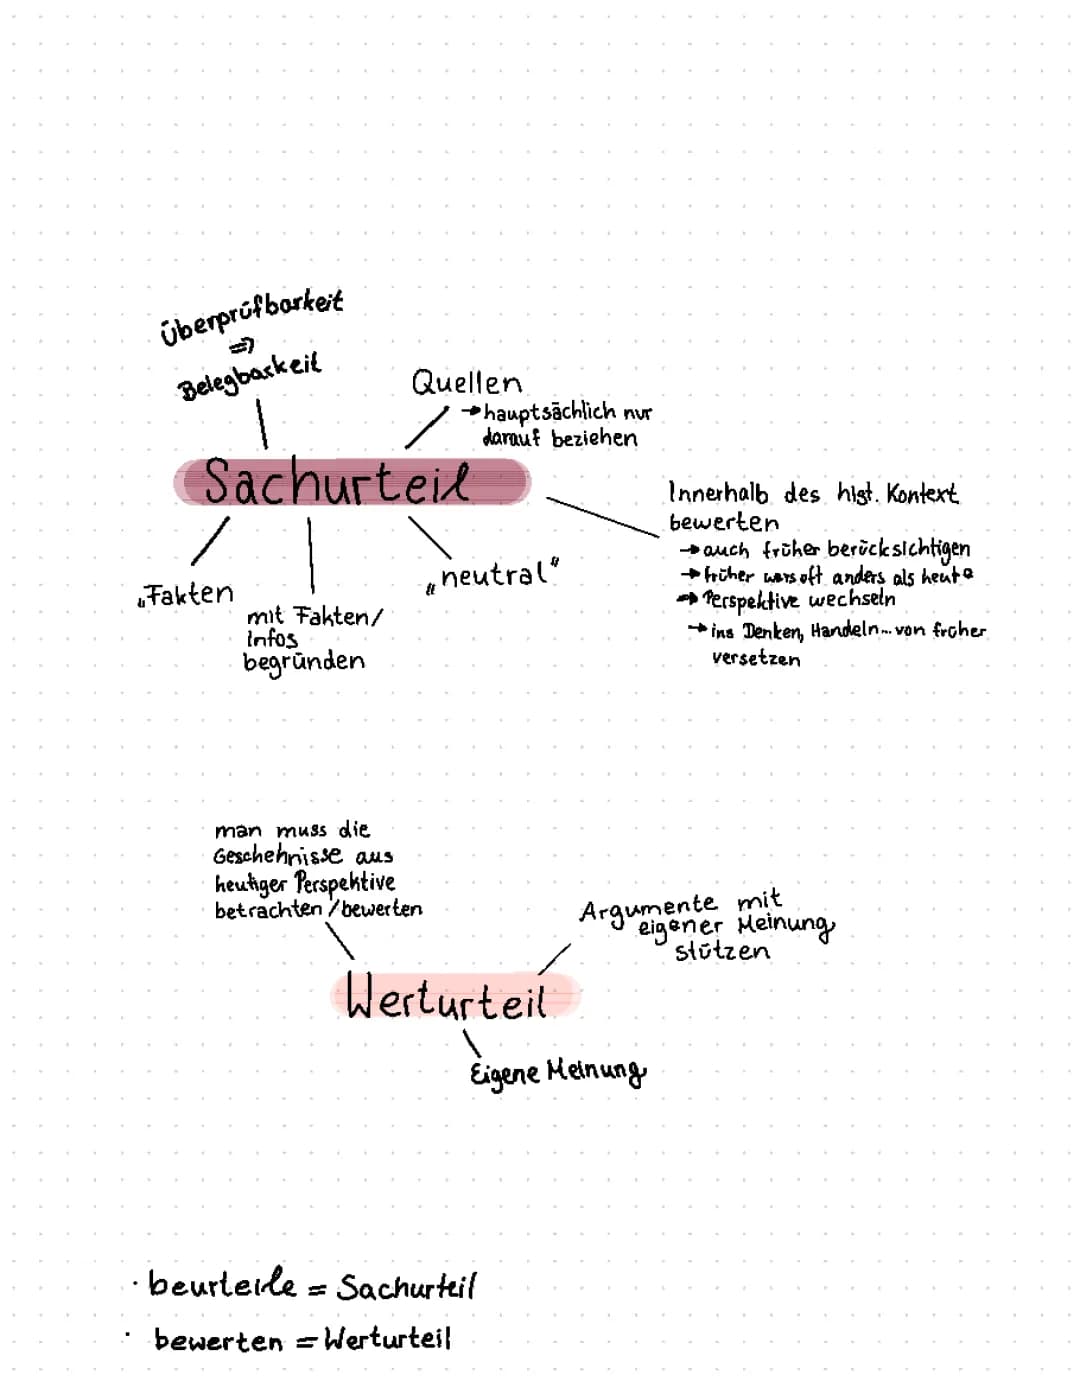 Überprüfbarkeit
=>
Belegbarkeit
Quellen
→ hauptsächlich nur
darauf beziehen
Sachurteil
Innerhalb des hist. Kontext
bewerten
→ auch früher berücksichtigen
→ früher wars oft anders als heute
→ Perspektive wechseln
→ ins Denken, Handeln... von früher
versetzen
„Fakten
mit Fakten/
Infos
begründen
„neutral"
man muss die
Geschehnisse aus
heutiger Perspektive
betrachten/bewerten
Argumente mit
eigener Meinung
stützen
Werturteil
Eigene Meinung
· beurteile = Sachurteil
· bewerten = Werturteil